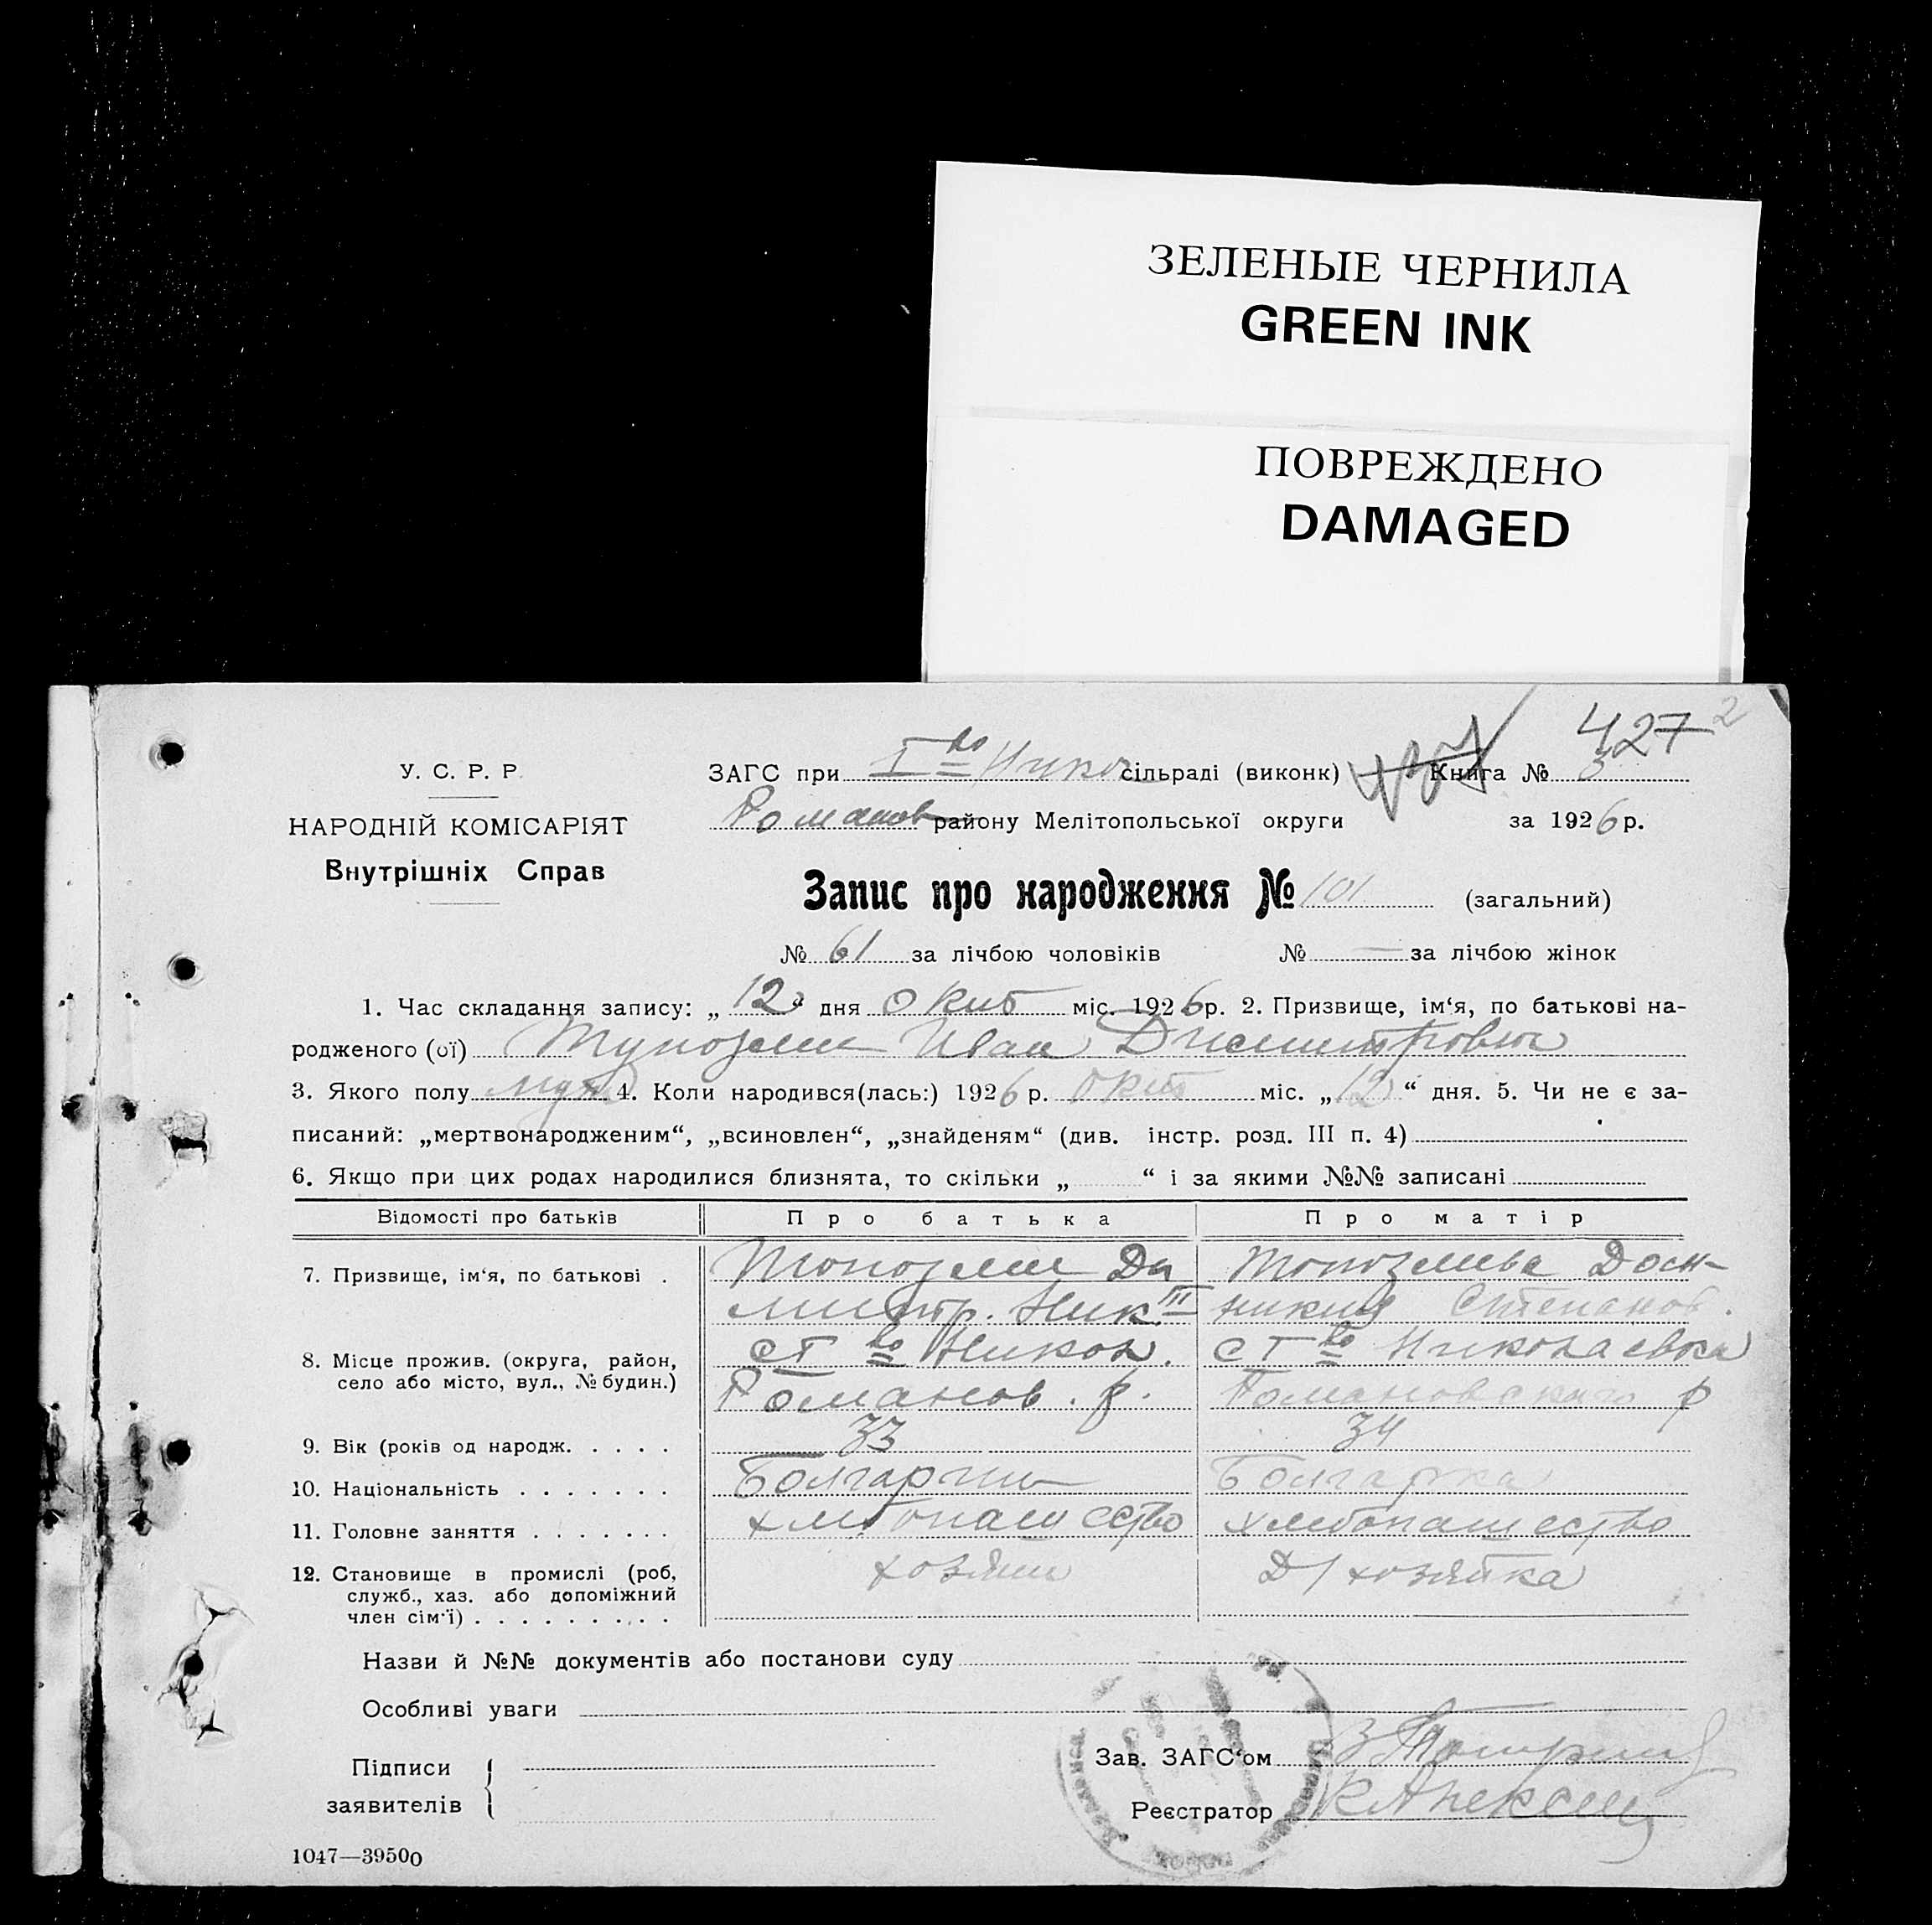 ЗЕЛЕНЫЕ ЧЕРНИЛА
GREEN INK
ПОВРЕЖДЕНО
DAMAGED
427 2
У. С. Р. Р.
НАРОДНІЙ КОМІСАРІЯТ
Внутрішніх Справ
ЗАГС при I во Нико сільраді (виконк) Книга № 3
Романов району Мелітопольської округи за 1926 р.
Запис про народження № 101 (загальний)
№ 61 за лічбою чоловіків № — за лічбою жінок
1. Час складання запису: „ 12 “ дня Окт міс. 1926 р. 2. Призвище, ім‘я, по батькові на-
родженого (ої) Иван Дмитрович
3. Якого полу муж 4. Коли народився(лась:) 1926 р. Окт міс. „ 12 “ дня. 5. Чи не є за-
писаний: „мертвонародженим“, „всиновлен“, „знайденям“ (див. інстр. розд. III п. 4)
6. Якщо при цих родах народилися близнята, то скільки „ “ і за якими №№ записані
Відомості про батьків Про батька Про матір
7. Призвище, ім‘я, по батькові . Топозлии Ди Топозлиева Дом-
митр. Ник. III никия Степанов.
8. Місце прожив. (округа, район, с I во Никол. с I во Николаевка
село або місто, вул., № будин.) Романов. р. Романовского р
9. Вік (років од народж. . . . . 33 34
10. Національність . . . . . . . Болгарин Болгарка
11. Головне заняття . . . . . . . хлебопашество хлебопашество
12. Становище в промислі (роб, хозяин Д/хозяйка
служб., хаз. або допоміжний
член сім‘ї) . . . . . . . . .
Назви й №№ документів або постанови суду
Особливі уваги
Підписи
заявителів
Зав. ЗАГС‘ом
Реєстратор
1047—39500